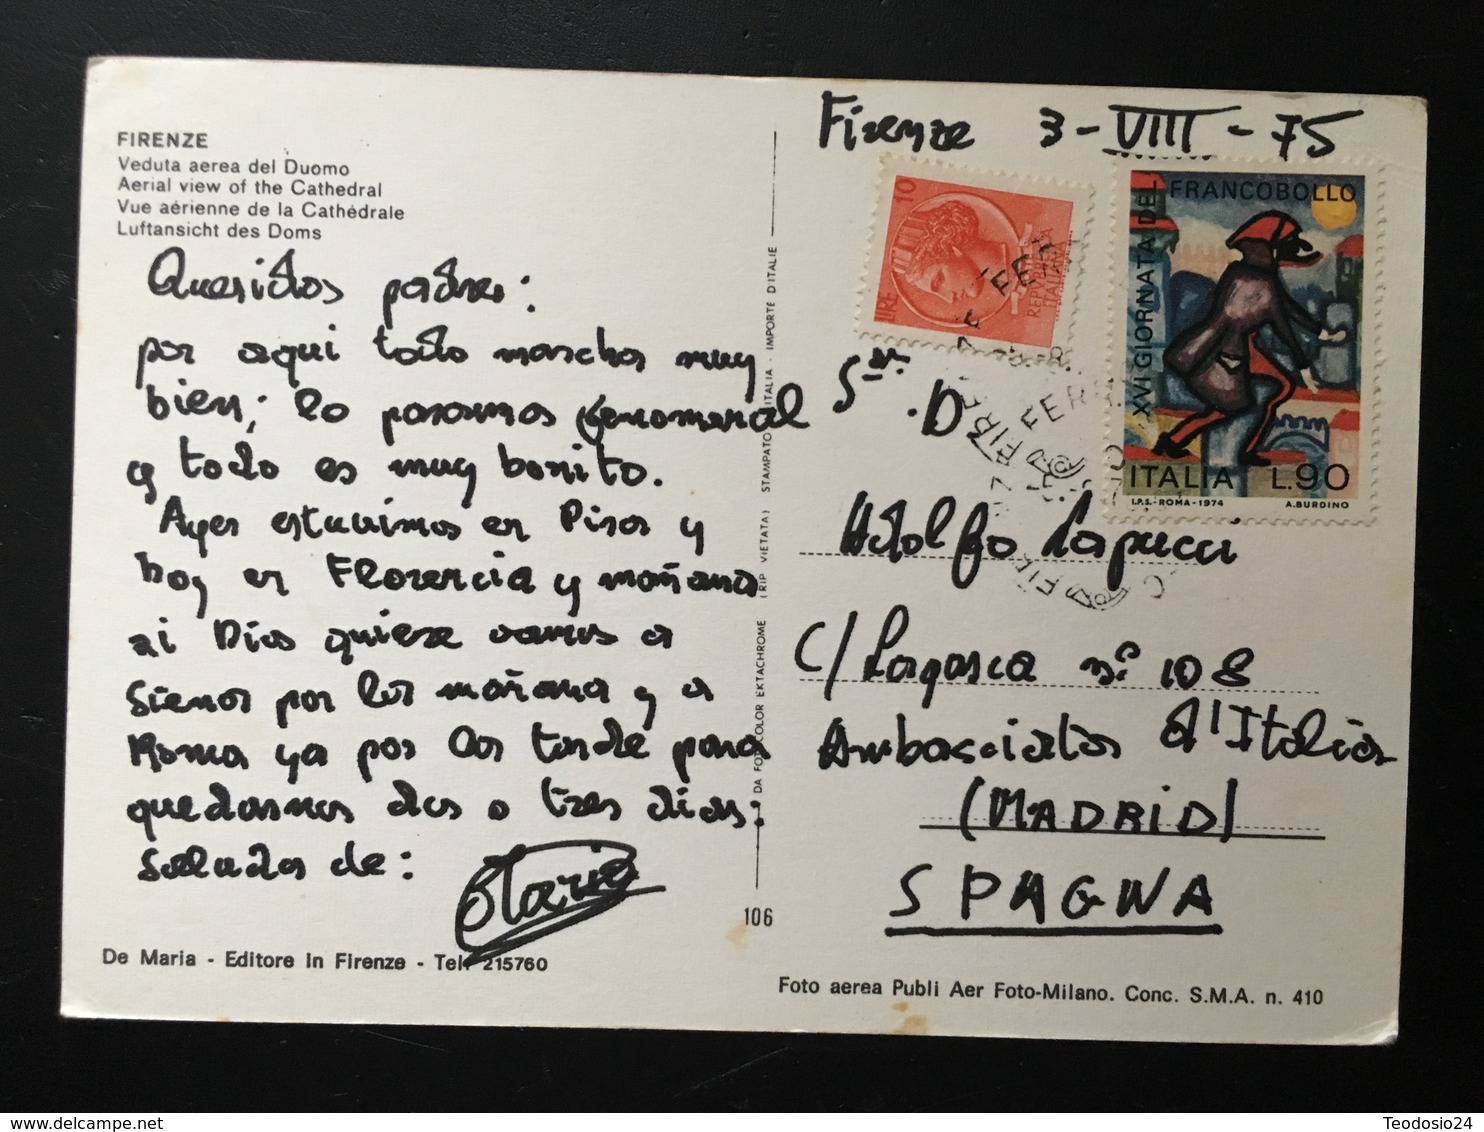 FIRENZE
Veduta aerea del Duomo
Aerial view of the Cathedral
Vue aérienne de la Cathédrale
Luftansicht des Doms
Queridos padres:
por aqui todo marcha muy
bien; lo pasamos fenomenal
y todo es muy bonito.
Ayer estuvimos en Pisa y
hoy en Florencia y mañana
si Dios quiere vamos a
Siena por la mañana y a
Roma ya por la tarde para
quedarnos dos o tres dias.
Saludos de:
Maria
De Maria - Editore In Firenze - Tel. 215760
106
DA FOTOCOLOR EKTACHROME (RIP. VIETATA) STAMPATO ITALIA - IMPORTE D'ITALIE
Firenze 3-VIII-75
10
LIRE
REPVBBLICA
ITALIANA
XVI GIORNATA DEL FRANCOBOLLO
ITALIA L.90
I.P.S.-ROMA-1974 A.BURDINO
Sr. D
Adolfo Lapucci
C/ Lagasca nº 108
Ambasciata d'Italia
(MADRID)
SPAGNA
Foto aerea Publi Aer Foto-Milano. Conc. S.M.A. n. 410
Teodosio24